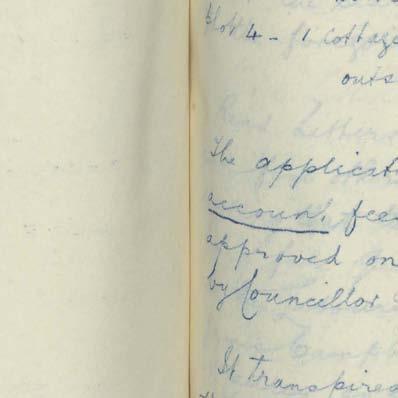 Plot 4 - 1 cottage
outs
Read Letters
The applicati
account, fee
approved on
by Councillor
It transpired